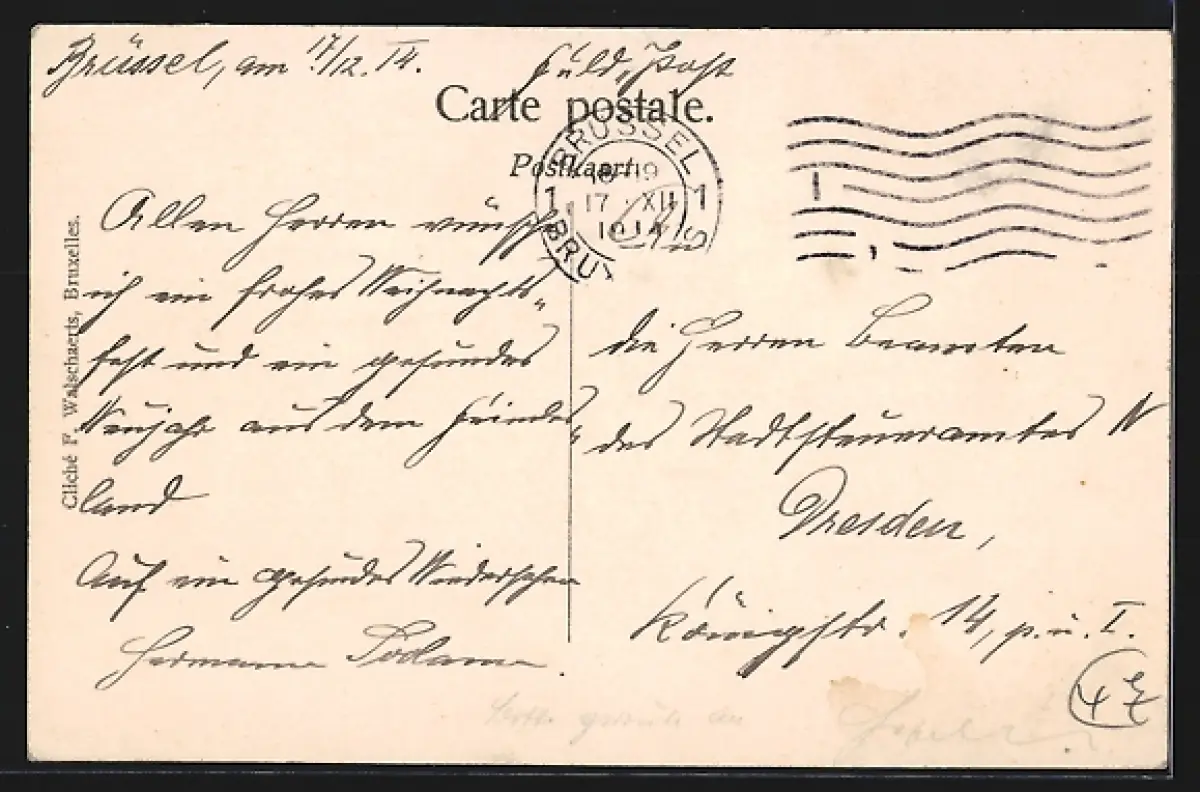 Brüssel, am 17./12. 14.
Feld-Post
Carte postale.
Postkaart
BRÜSSEL
18-19
1 17 XII 1
1914
BRUX
Allen Herren wünsche
ich ein frohes Weihnachts-
fest und ein gesundes
Neujahr aus dem Feindes-
land
Auf ein gesundes Wiedersehen
Hermann
die Herren Beamten
des Stadtsteueramtes N
Dresden,
Königstr. 14, p. u. I.
Cliché F. Walschaerts, Bruxelles.